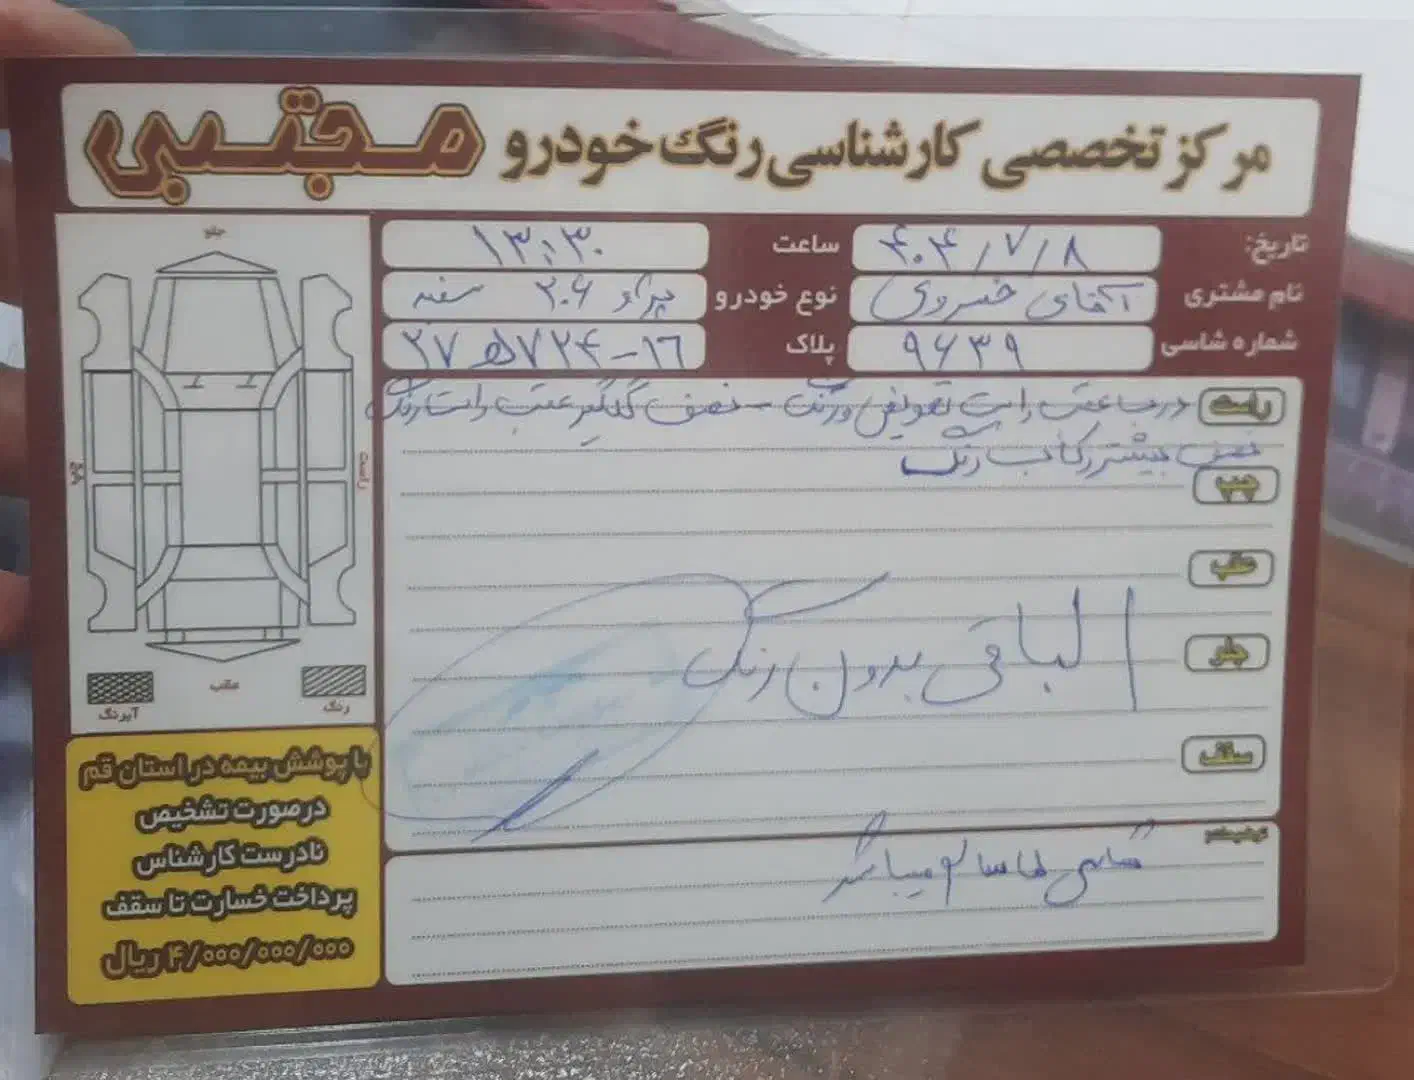 مرکز تخصصی کارشناسی رنگ خودرو مجتبی
تاریخ: ۴۰۴/۷/۸ ساعت ۱۳:۳۰
نام مشتری آقای خسروی نوع خودرو پژو ۲۰۶ سفید
شماره شاسی ۹۶۳۹ پلاک ۲۷ ه ۷۲۴-۱۶
راست درب عقب راست تعویض و رنگ - نصف گلگیر عقب راست رنگ
نصف بیشتر رکاب رنگ
چپ
عقب
جلو
الباقی بدون رنگ
سقف
توضیحات
شاسی ها سالم میباشد
جلو
چپ
راست
عقب
رنگ
آبرنگ
با پوشش بیمه در استان قم
درصورت تشخیص
نادرست کارشناس
پرداخت خسارت تا سقف
۴/۰۰۰/۰۰۰/۰۰۰ ریال